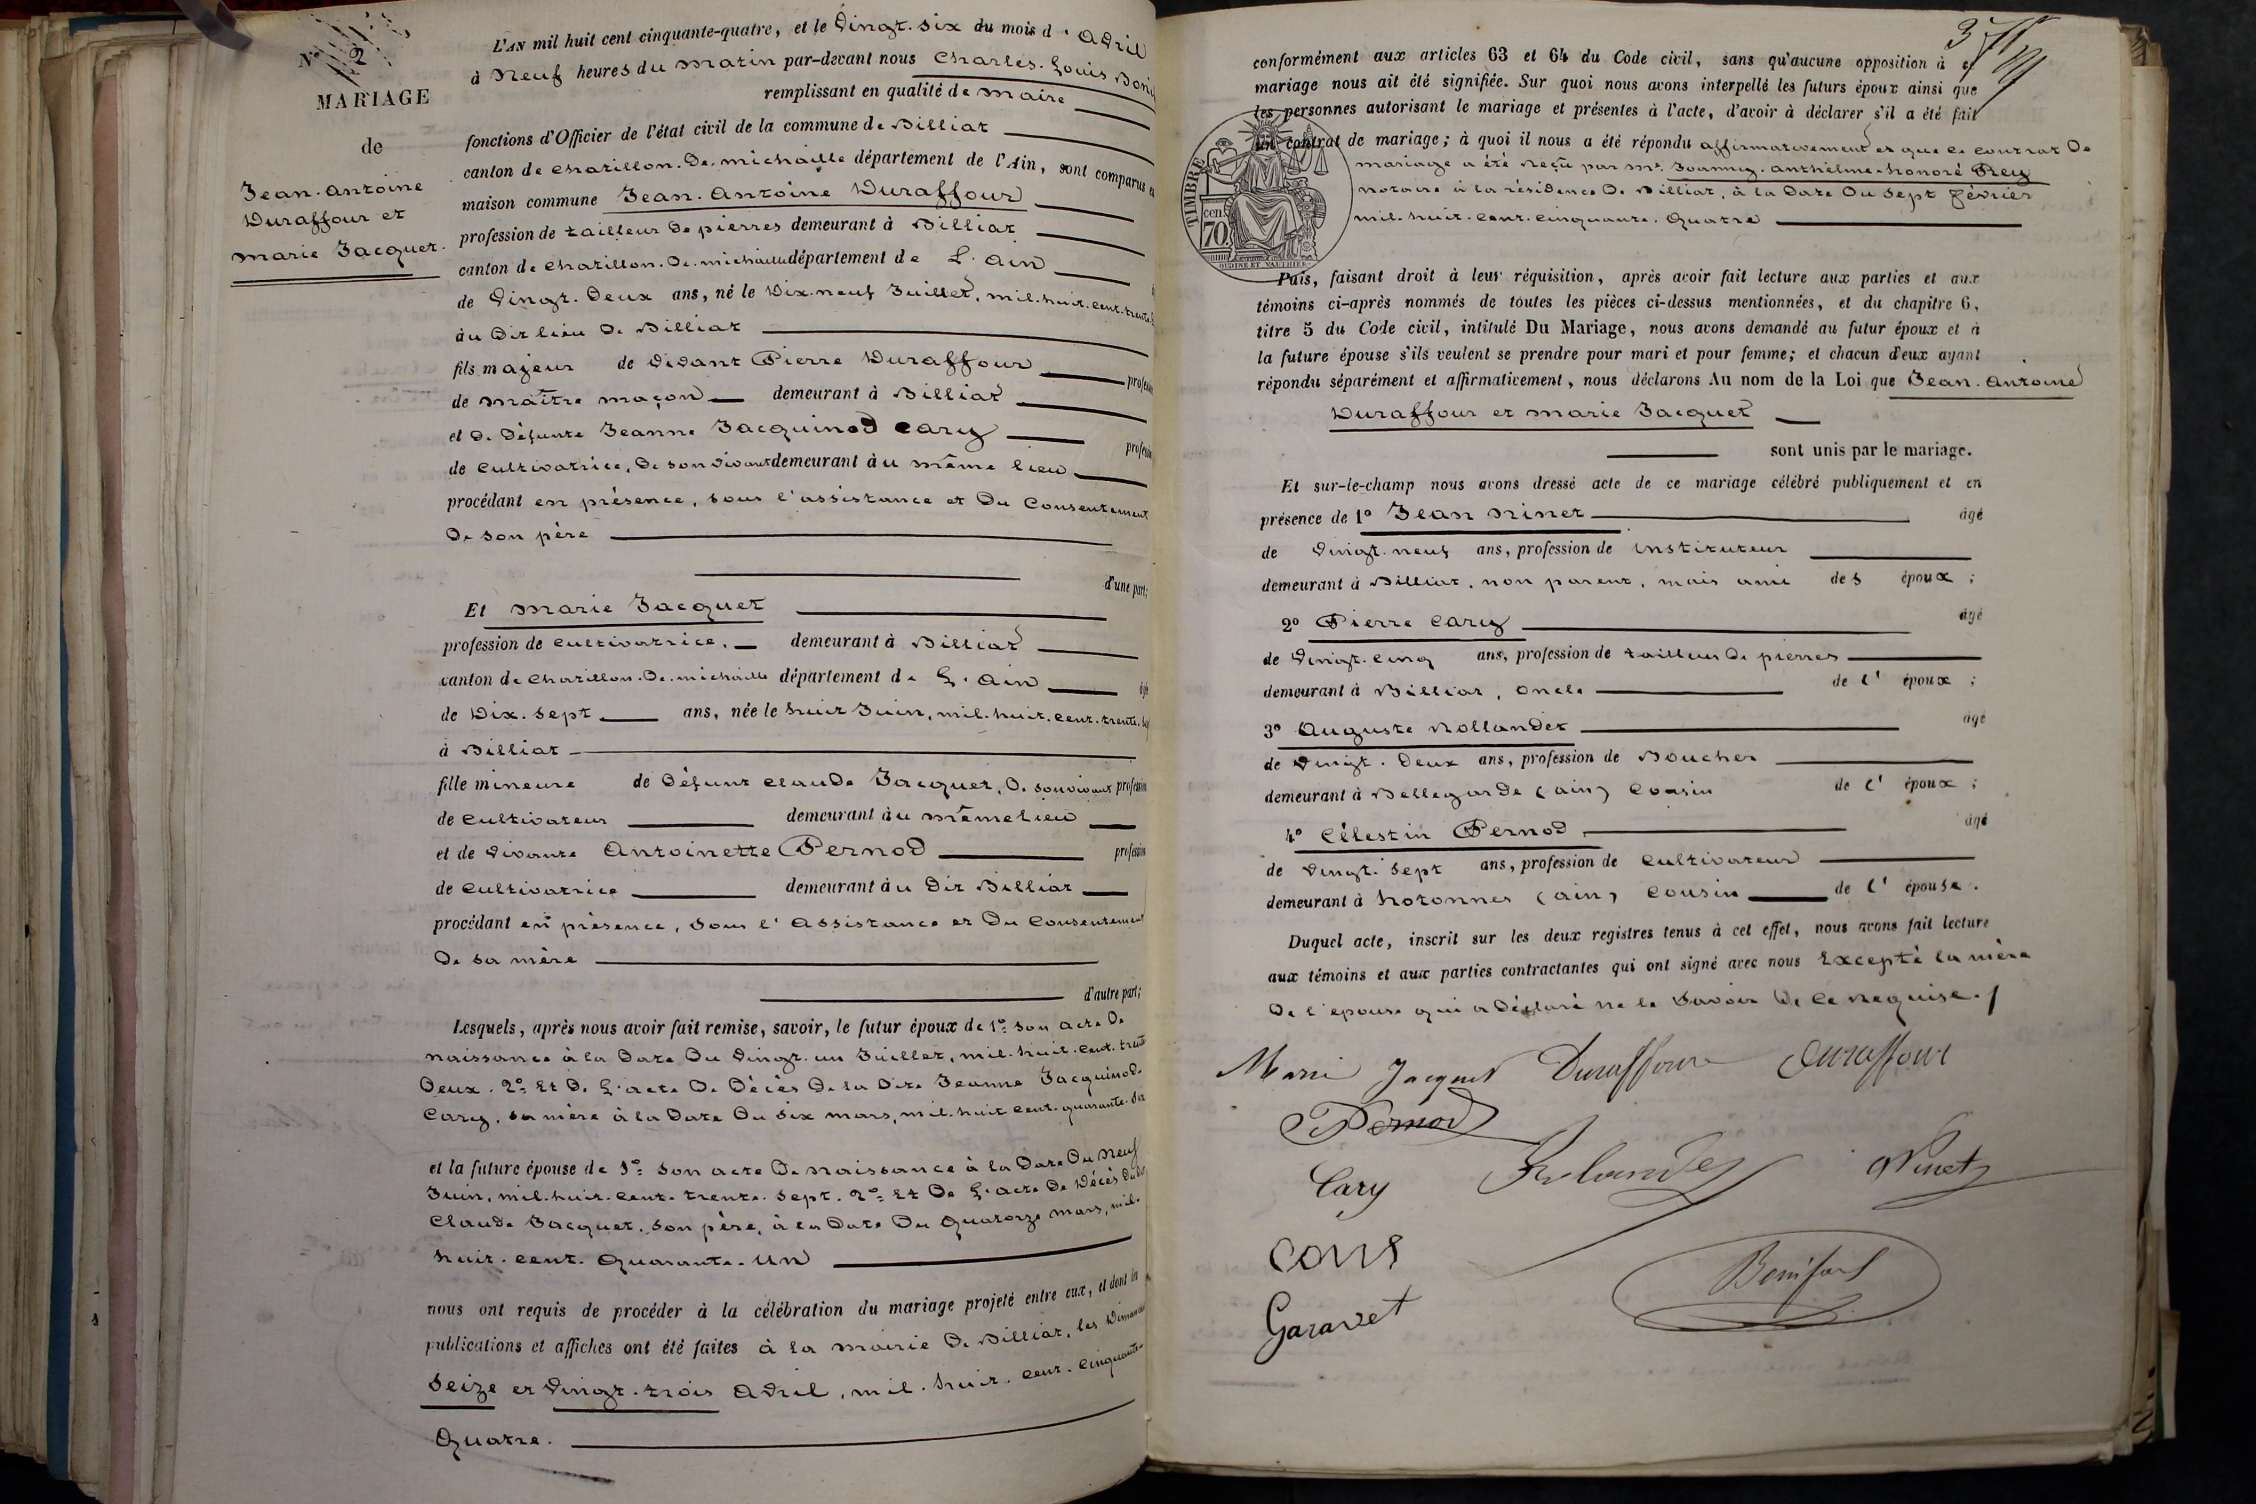 N.° 2
MARIAGE
de
Jean-Antoine
Duraffour et
Marie Jacquet.
L'AN mil huit cent cinquante-quatre, et le Vingt-six du mois d'Avril
à Neuf heures du matin par-devant nous Charles-Louis
remplissant en qualité de maire
fonctions d'Officier de l'état civil de la commune de Billiat
canton de Chatillon-De-michaille département de l'Ain, sont comparus en
maison commune Jean-Antoine Duraffour
profession de tailleur de pierres demeurant à Billiat
canton de Chatillon-De-michaille département de L'Ain
de Vingt-Deux ans, né le Dix-neuf Juillet, mil-huit-cent-trente
àu Dit lieu De Billiat
fils majeur de Vivant Pierre Duraffour profession
de maître maçon demeurant à Billiat
et de Défunte Jeanne Jacquinod Cary profession
de cultivatrice, De son vivant demeurant àu même lieu
procédant en présence, sous l'assistance et Du Consentement
De son père
d'une part;
Et Marie Jacquet
profession de cultivatrice, demeurant à Billiat
canton de Chatillon-De-michaille département de L'Ain âgée
de Dix-sept ans, née le huit Juin, mil-huit-cent-trente-
à Billiat
fille mineure de Défunt Claude Jacquet, De son vivant profession
de cultivateur demeurant àu même lieu
et de Vivante Antoinette Pernod profession
de cultivatrice demeurant àu Dit Billiat
procédant en présence, sous l'assistance et Du Consentement
De sa mère
d'autre part;
Lesquels, après nous avoir fait remise, savoir, le futur époux de 1° son acte De
naissance à la Date Du Vingt-un Juillet, mil-huit-cent-trente
Deux. 2° Et De L'acte De Décès De la Dite Jeanne Jacquinod-
Cary, sa mère à la Date Du Six mars, mil-huit cent-quarante-
et la future épouse de 1° son acte De naissance à la Date Du Neuf
Juin, mil-huit-cent-trente-sept. 2° Et De L'acte De Décès Du dit
Claude Jacquet, son père, à la Date Du Quatorze mars, mil-
huit-cent-Quarante-un
nous ont requis de procéder à la célébration du mariage projeté entre eux, et dont les
publications et affiches ont été faites à la mairie De Billiat, les Dimanches
Seize et Vingt-trois Avril, mil-huit-cent-cinquante-
Quatre.
conformément aux articles 63 et 64 du Code civil, sans qu'aucune opposition à ce
mariage nous ait été signifiée. Sur quoi nous avons interpellé les futurs époux ainsi que
les personnes autorisant le mariage et présentes à l'acte, d'avoir à déclarer s'il a été fait
un contrat de mariage; à quoi il nous a été répondu affirmativement et que ce contrat De
mariage a été reçu par Me. Joanny-Anthelme-honoré Rey
notaire à la résidence De Billiat, à la Date Du Sept Février
mil-huit-cent-cinquante-Quatre
TIMBRE
cen.
70
OUDINE ET VAUTHIER
Puis, faisant droit à leur réquisition, après avoir fait lecture aux parties et aux
témoins ci-après nommés de toutes les pièces ci-dessus mentionnées, et du chapitre 6,
titre 5 du Code civil, intitulé Du Mariage, nous avons demandé au futur époux et à
la future épouse s'ils veulent se prendre pour mari et pour femme; et chacun d'eux ayant
répondu séparément et affirmativement, nous déclarons Au nom de la Loi que Jean-Antoine
Duraffour et Marie Jacquet
sont unis par le mariage.
Et sur-le-champ nous avons dressé acte de ce mariage célébré publiquement et en
présence de 1° Jean Ninet âgé
de Vingt-neuf ans, profession de instituteur
demeurant à Billiat, non parent, mais ami des époux;
2° Pierre Cary âgé
de Vingt-cinq ans, profession de tailleur De pierres
demeurant à Billiat, oncle de l'époux;
3° Auguste Rollandet âgé
de Vingt-Deux ans, profession de Boucher
demeurant à Bellegarde (ain) Cousin de l'époux;
4° Célestin Pernod âgé
de Vingt-sept ans, profession de cultivateur
demeurant à hotonnes (ain) cousin de l'épouse.
Duquel acte, inscrit sur les deux registres tenus à cet effet, nous avons fait lecture
aux témoins et aux parties contractantes qui ont signé avec nous Excepté la mère
De l'épouse qui a Déclaré ne le savoir De ce requise.
Marie Jacquet Duraffour Duraffour
Pernod
Cary Ninet
Garavet